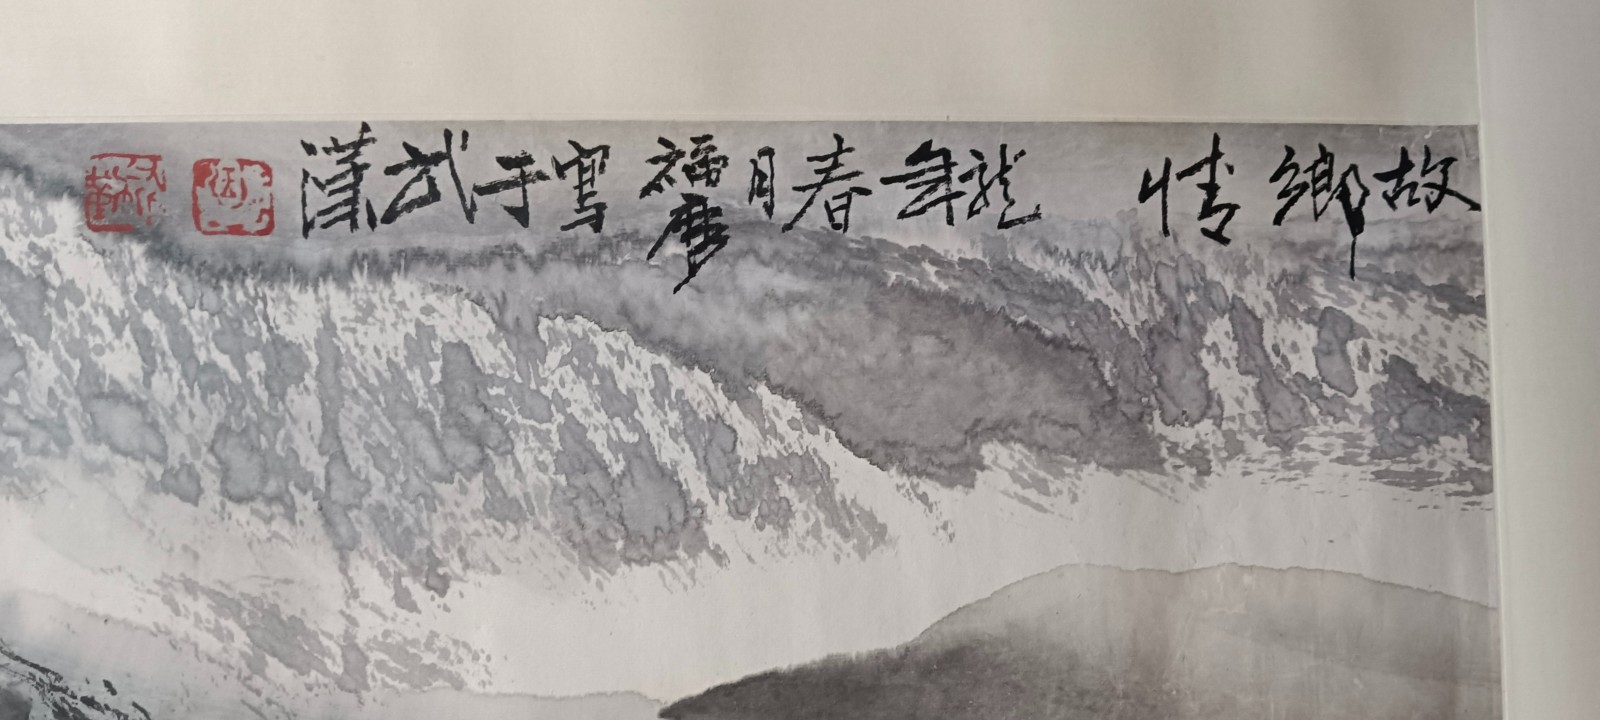 故鄉情 龍年春月福慶寫于武漢